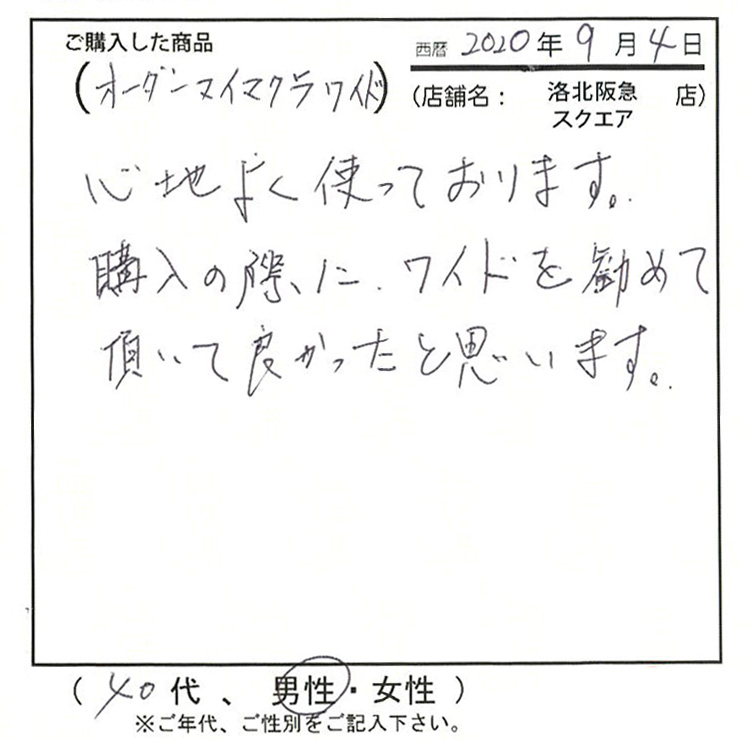 ご購入した商品
西暦 2020年 9月 4日
(オーダースイマクラワイド)
(店舗名: 洛北阪急スクエア 店)
心地よく使っております。
購入の際、に、ワイドを勧めて
頂いて良かったと思います。
( 40代 、 男性・女性 )
※ご年代、ご性別をご記入下さい。